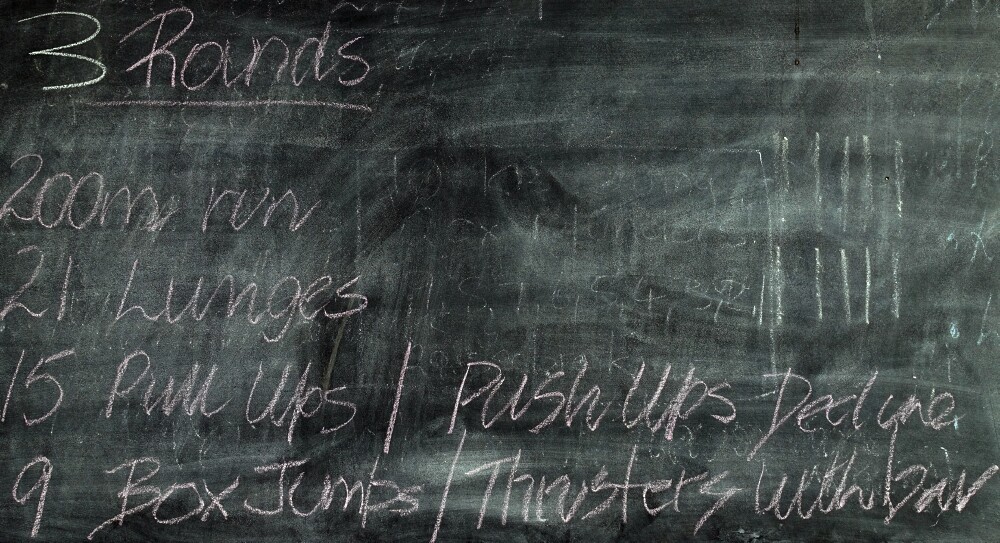 3 Rounds
200m run
21 Lunges
15 Pull Ups / Push Ups Decline
9 Box Jumps / Thrusters with bar